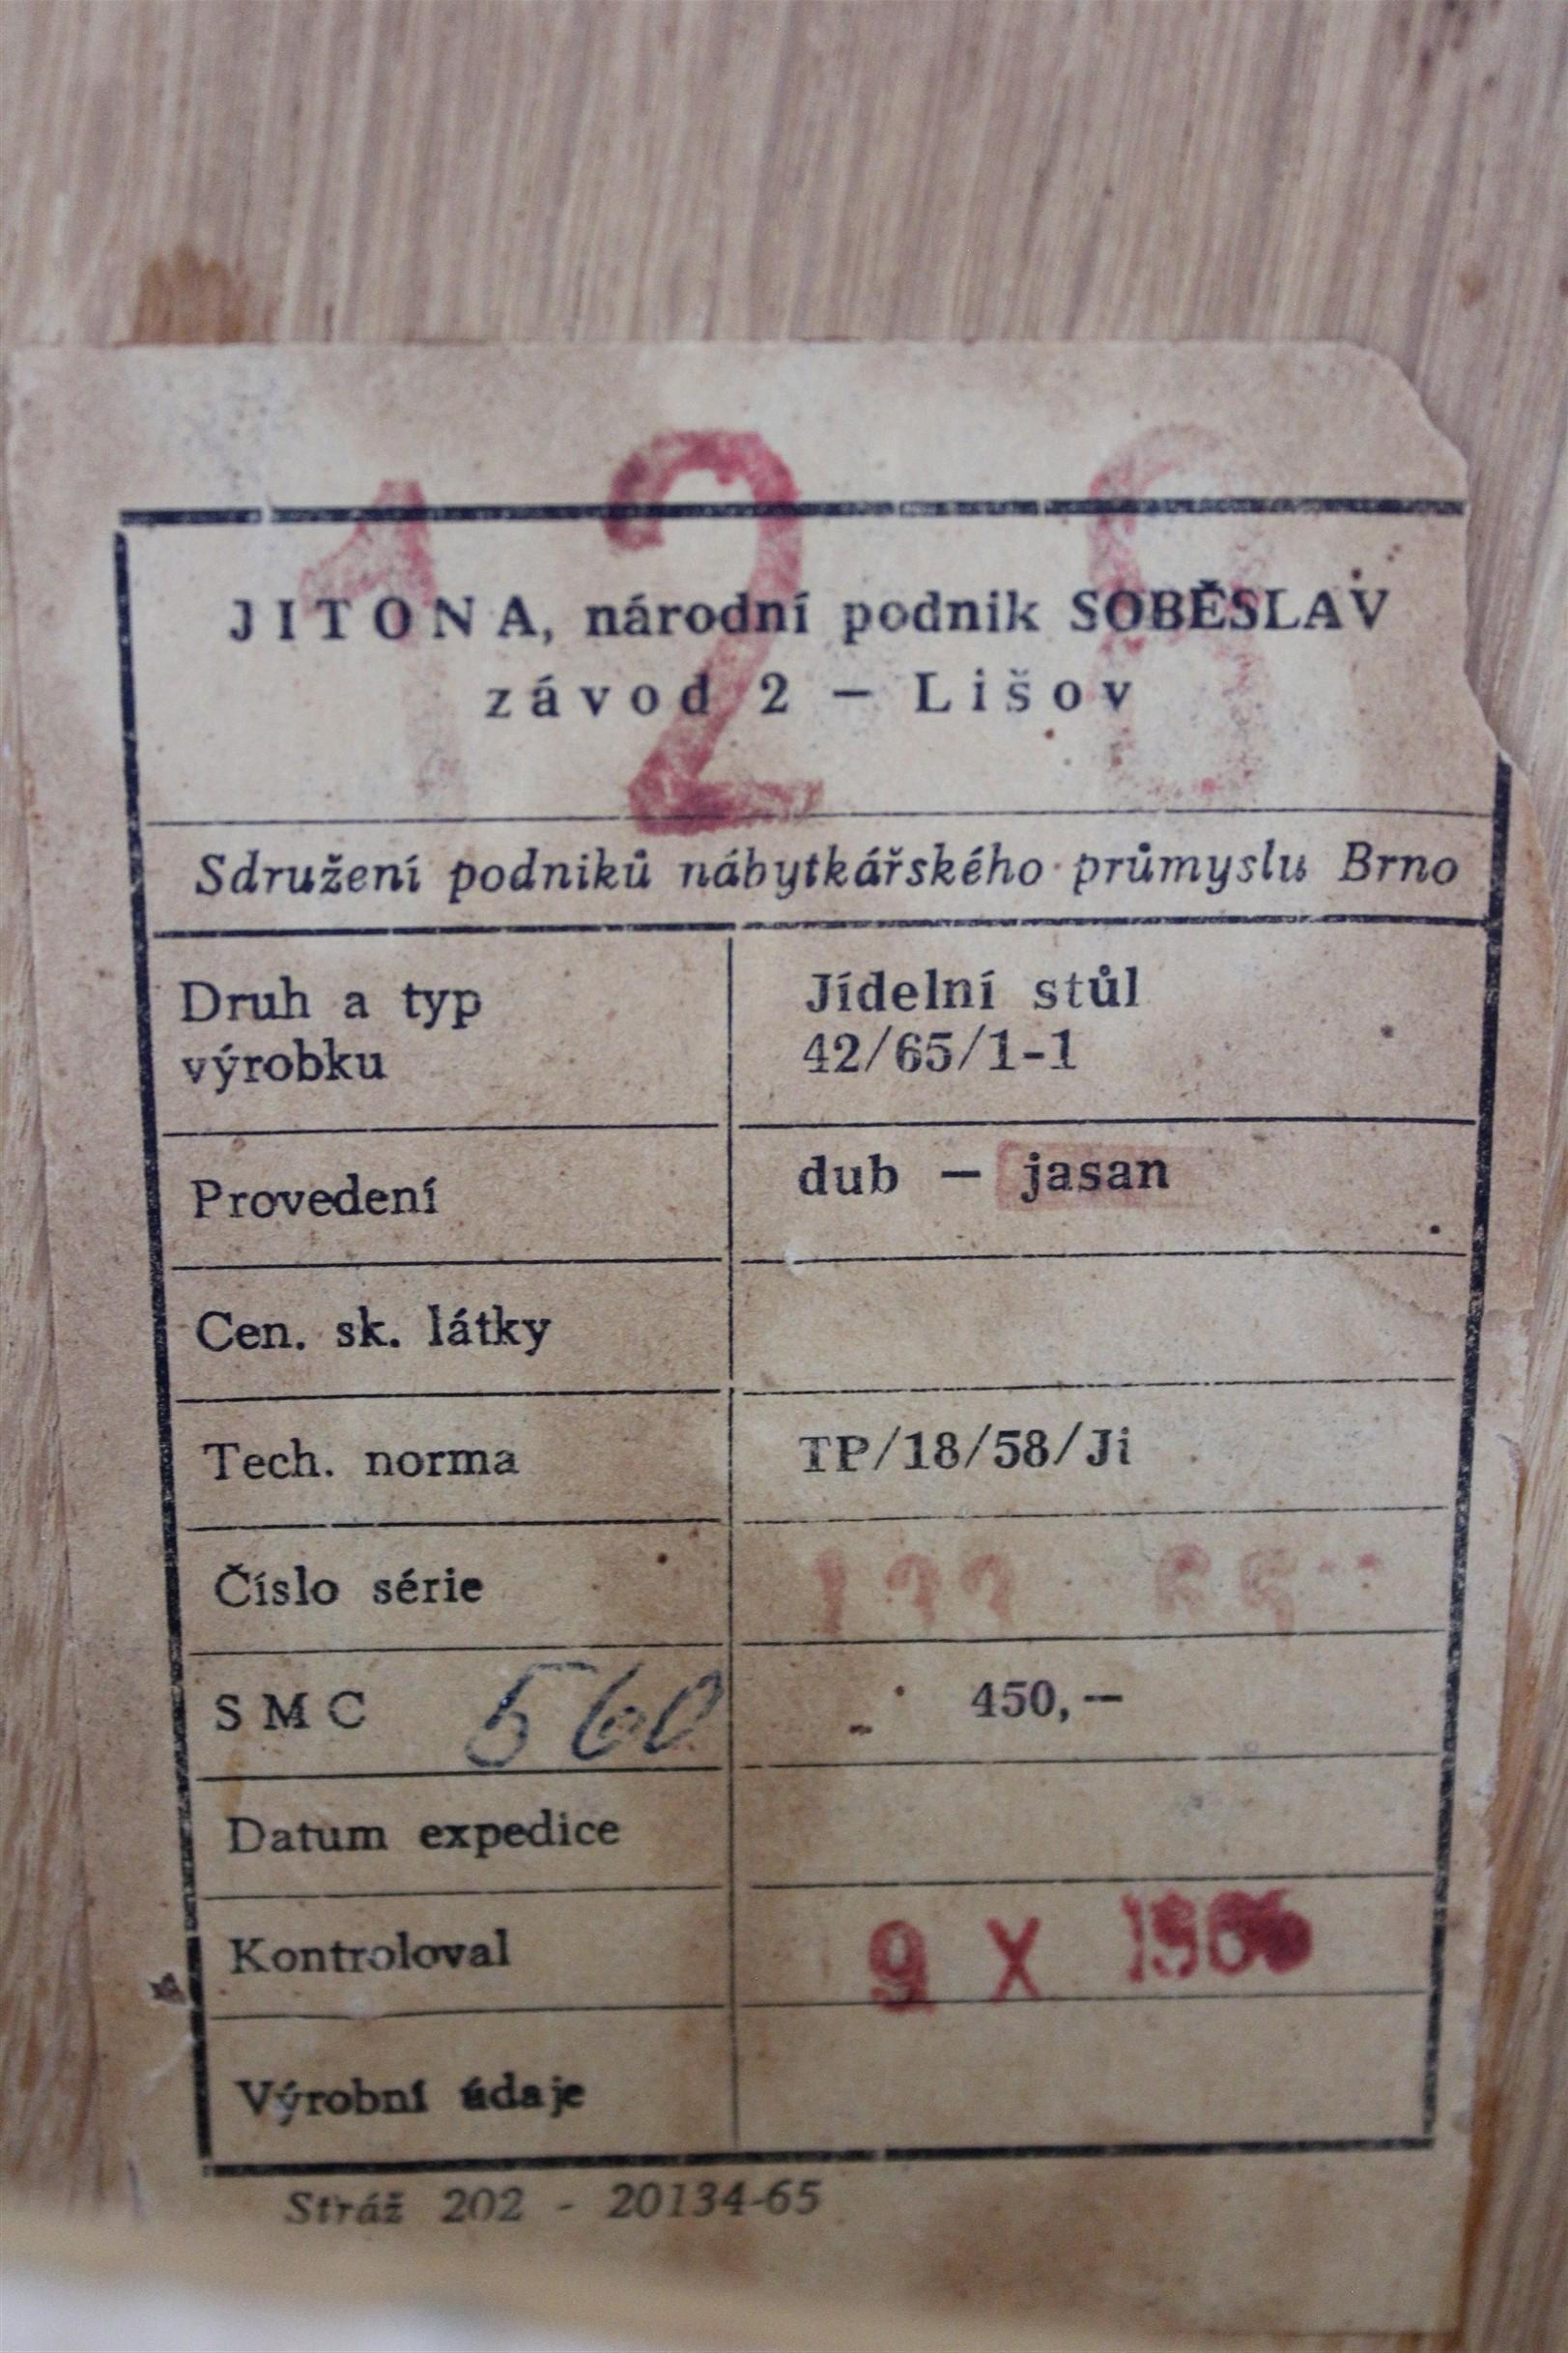 128
JITONA, národní podnik SOBĚSLAV
závod 2 – Lišov
Sdružení podniků nábytkářského průmyslu Brno
Druh a typ výrobku
Jídelní stůl
42/65/1-1
Provedení
dub – jasan
Cen. sk. látky
Tech. norma
TP/18/58/Ji
Číslo série
SMC 560
450,—
Datum expedice
Kontroloval
9 X 1966
Výrobní údaje
Stráž 202 - 20134-65